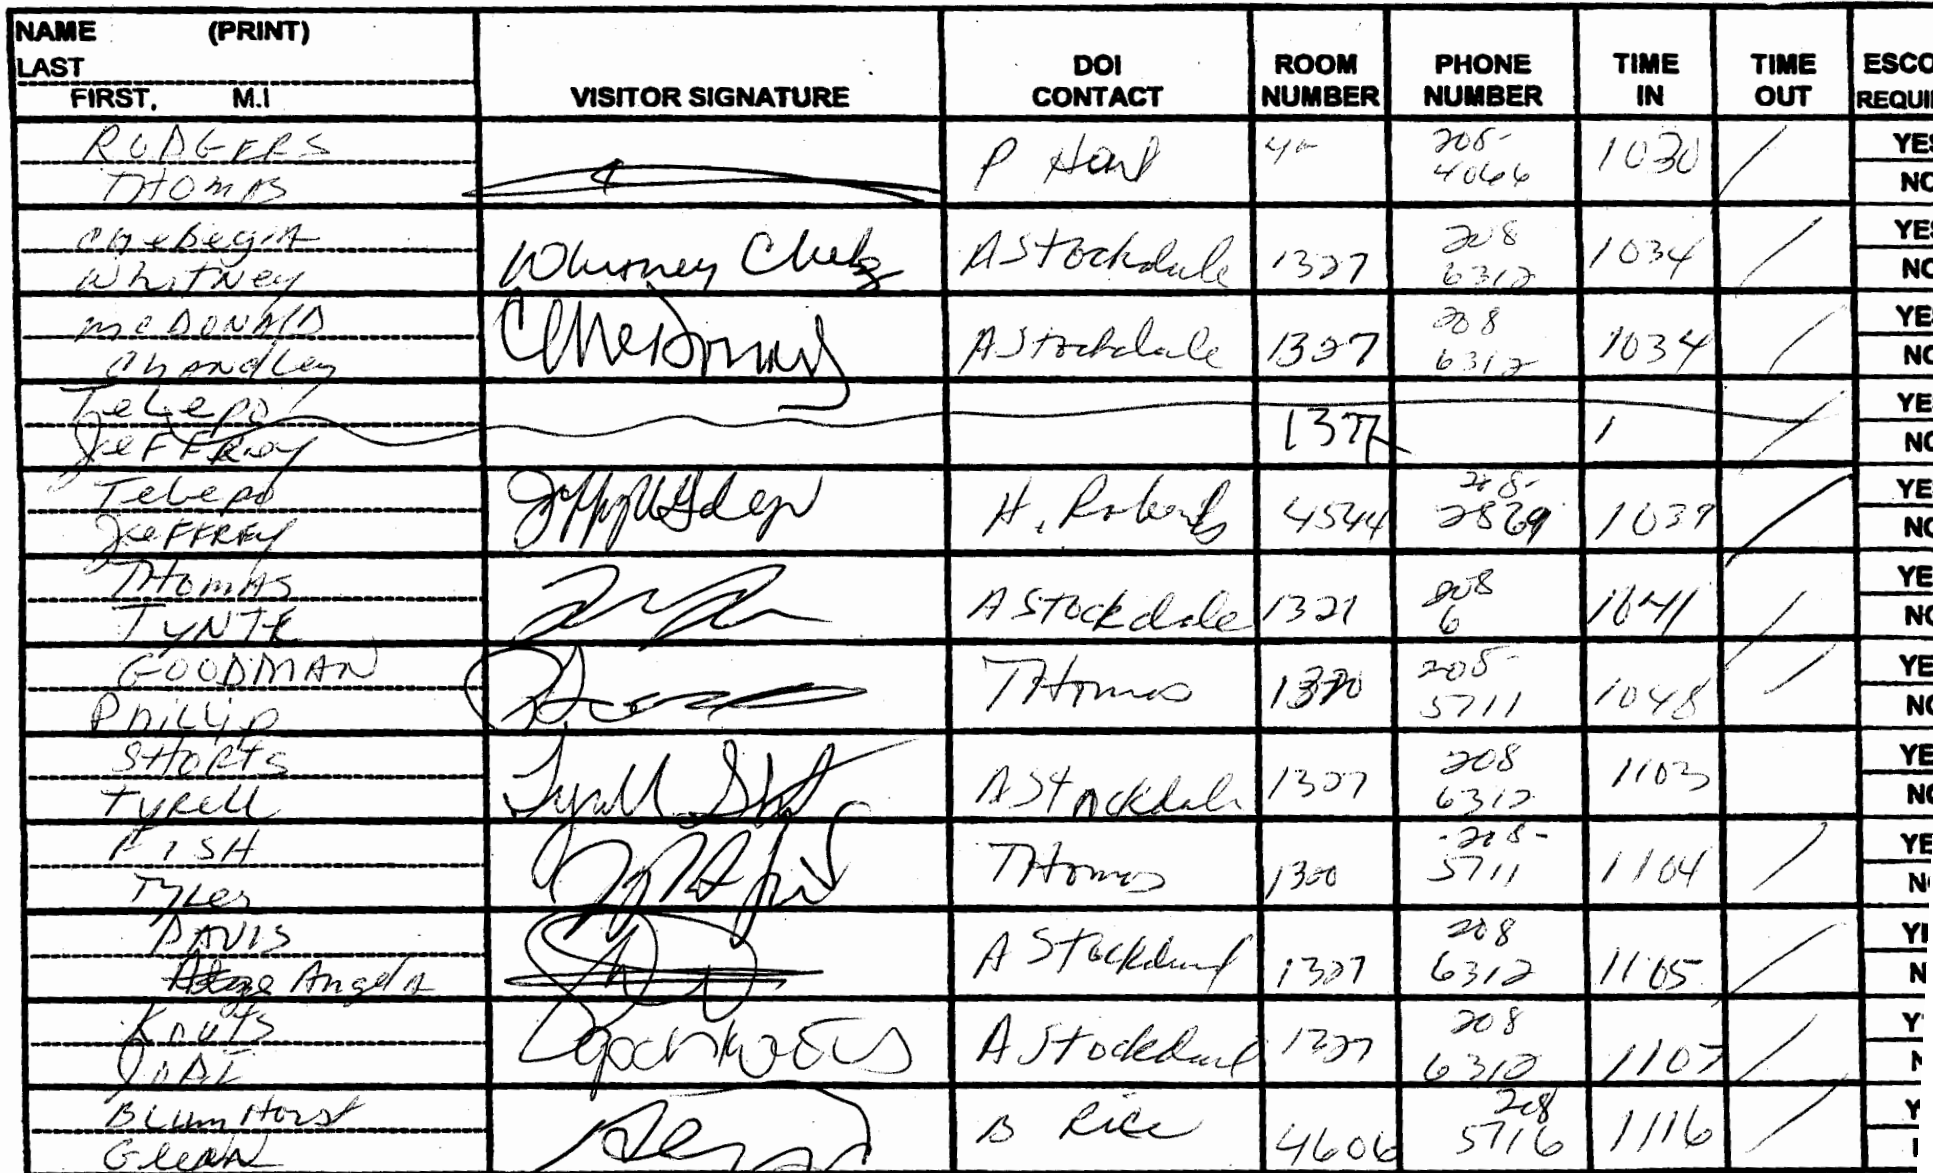 NAME (PRINT)
LAST
FIRST, M.I
VISITOR SIGNATURE
DOI
CONTACT
ROOM
NUMBER
PHONE
NUMBER
TIME
IN
TIME
OUT
ESCO
REQUI
RODGERS
THOMAS
P
208-
4066
1030
YES
NO
Chebegia
Whitney
Whitney
A Stockdale
1327
208
6312
1034
YES
NO
McDONALD
Chandley
A Stockdale
1327
208
6312
1034
YE
NO
Telepo
Jeffrey
1327
1
YE
NO
Telepo
Jeffrey
H. Roberts
4544
208-
2869
1039
YE
NO
THOMAS
TYNTE
A Stockdale
1321
208
6
1041
YE
NO
GOODMAN
Phillip
THomas
1320
208-
5711
1048
YE
NO
SHORTS
TYRELL
Tyrell
A Stockdale
1327
208
6312
1103
YE
NO
FISH
Tyler
THomas
1300
-208-
5711
1104
YE
N
DAVIS
Angela
A
1327
208
6312
1105
YI
N
Knuts
JODI
A
1327
208
6312
1107
Y
N
Blumhorst
Glenn
B Rice
4606
208
5716
1116
Y